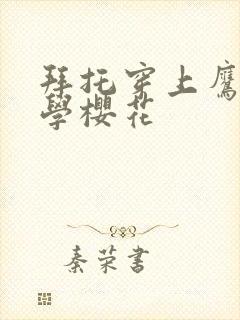 拜托穿上鹰
學櫻花
秦荣書